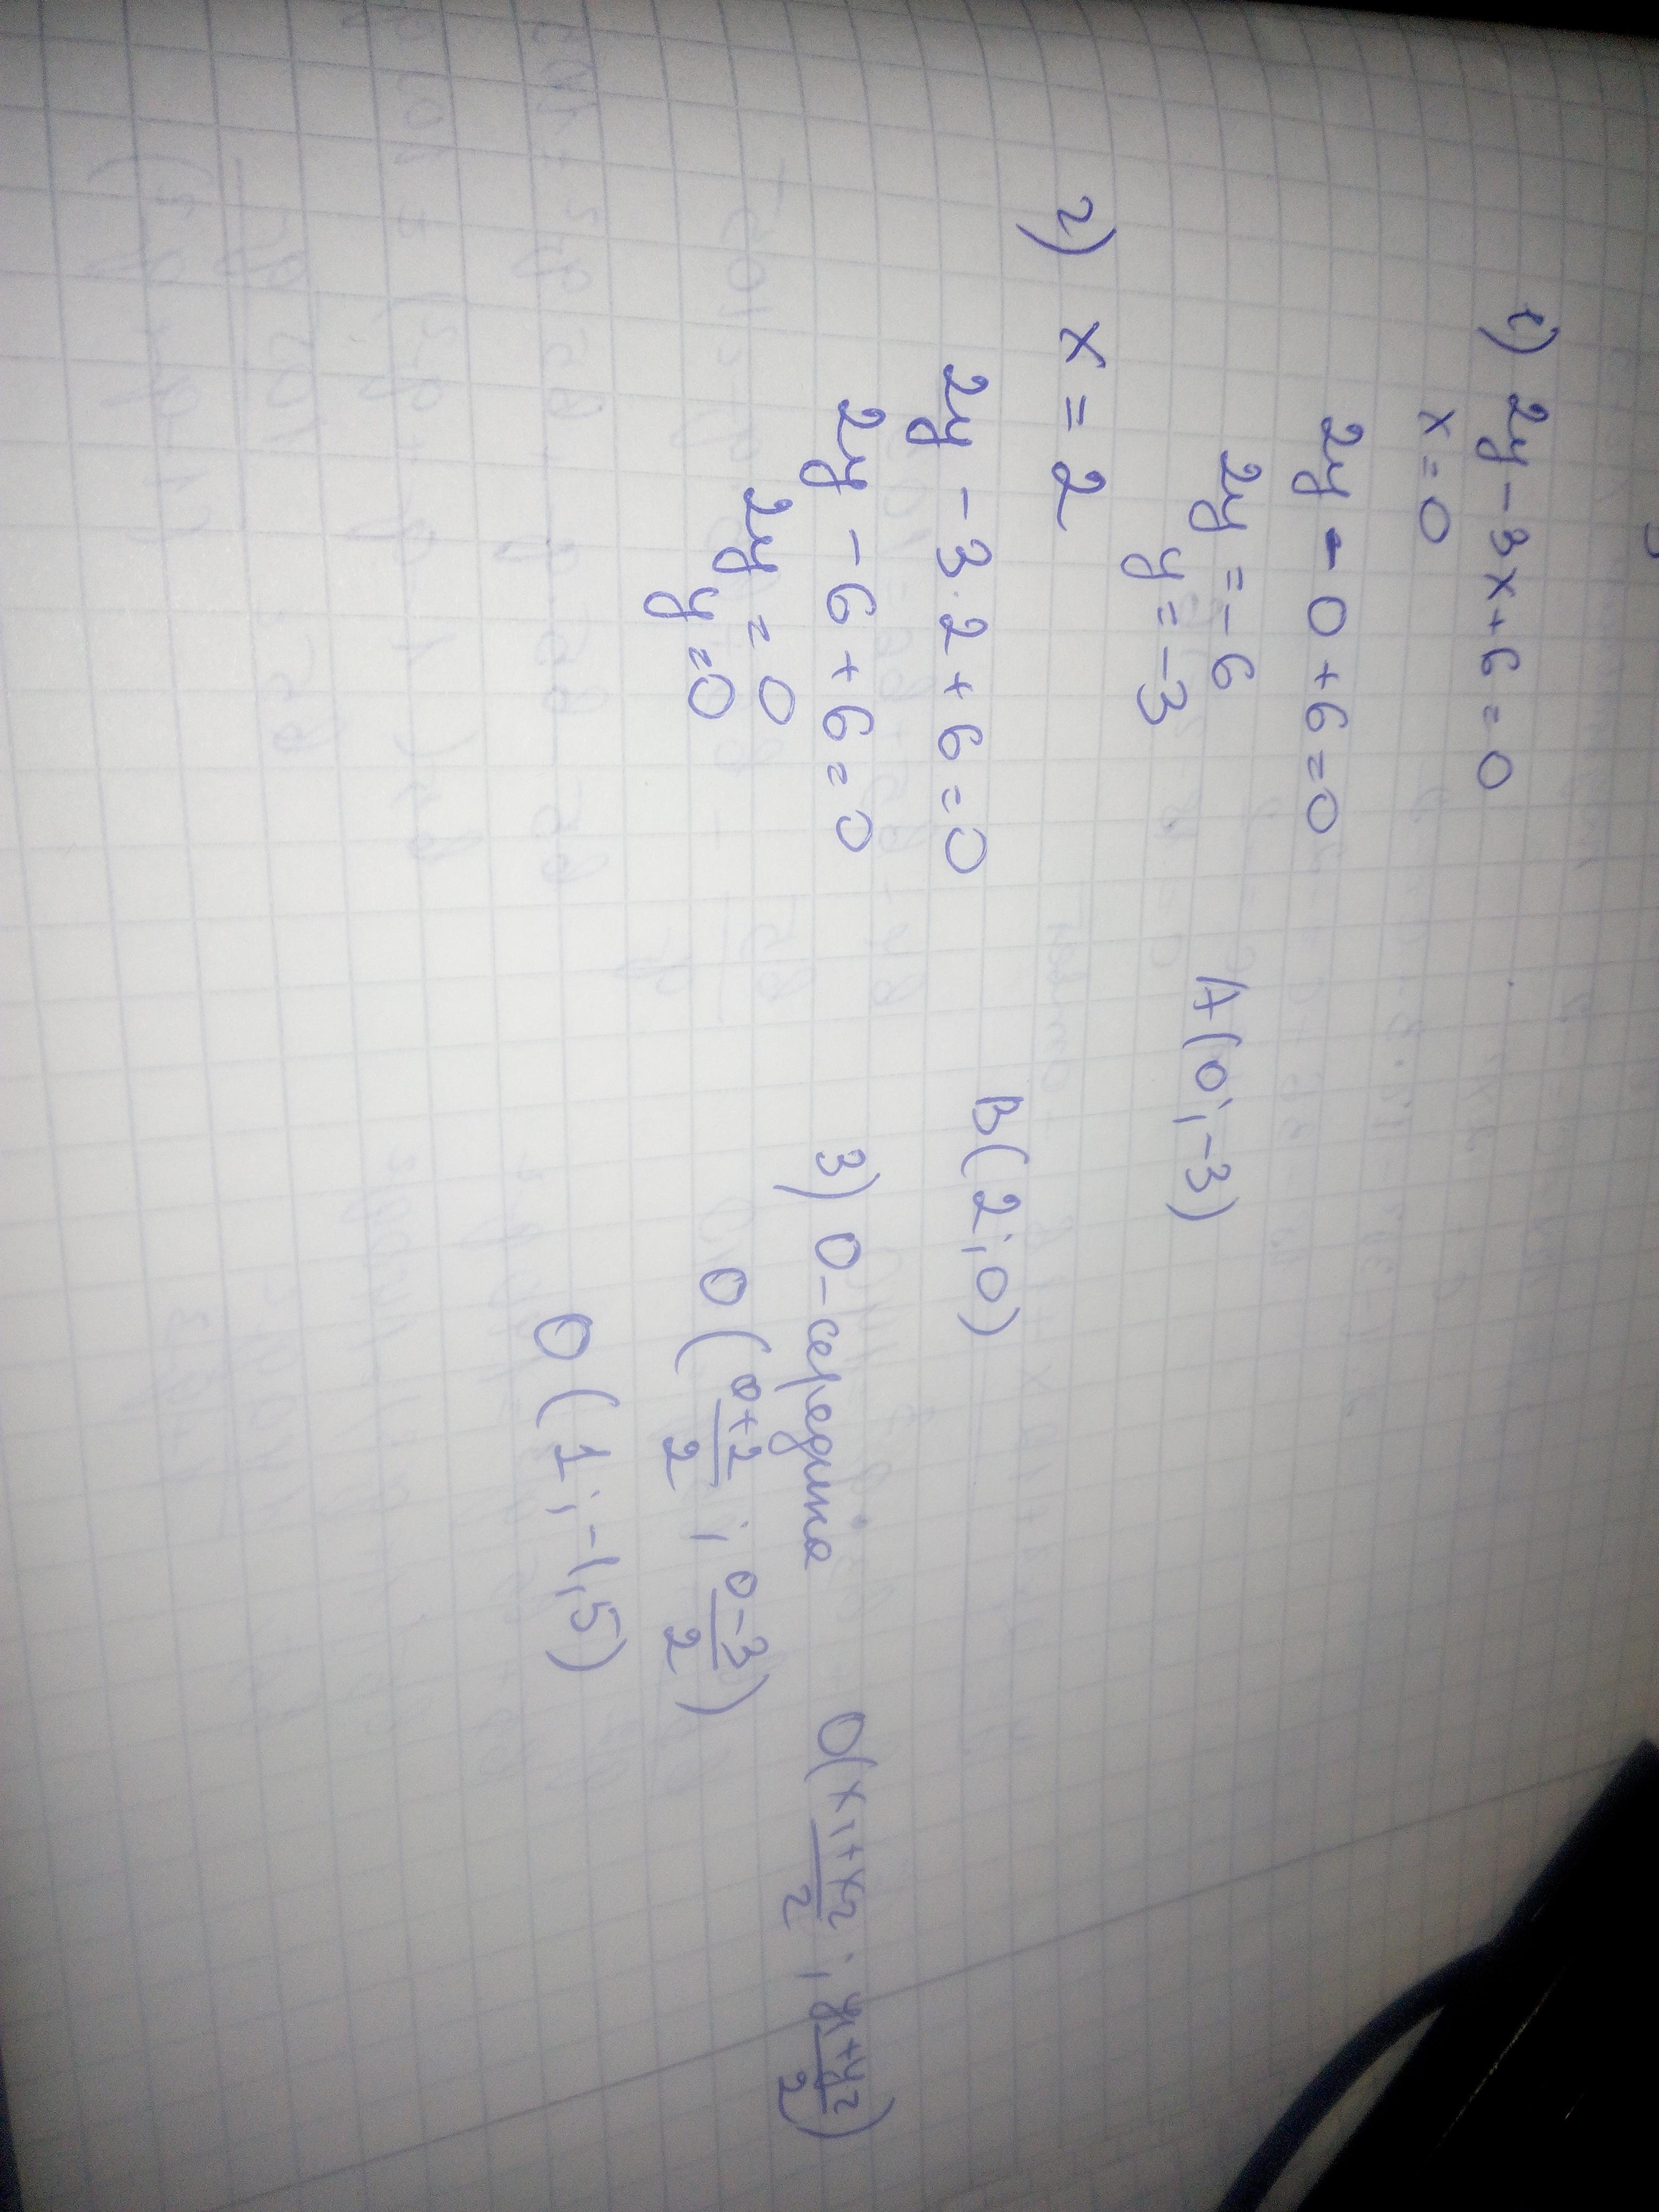 1) 2y - 3x + 6 = 0
x = 0
2y - 0 + 6 = 0
2y = -6
y = -3
A(0; -3)
2) x = 2
2y - 3·2 + 6 = 0
2y - 6 + 6 = 0
2y = 0
y = 0
B(2; 0)
3) O - середина O((x1+x2)/2; (y1+y2)/2)
O((0+2)/2; (0-3)/2)
O(1; -1,5)